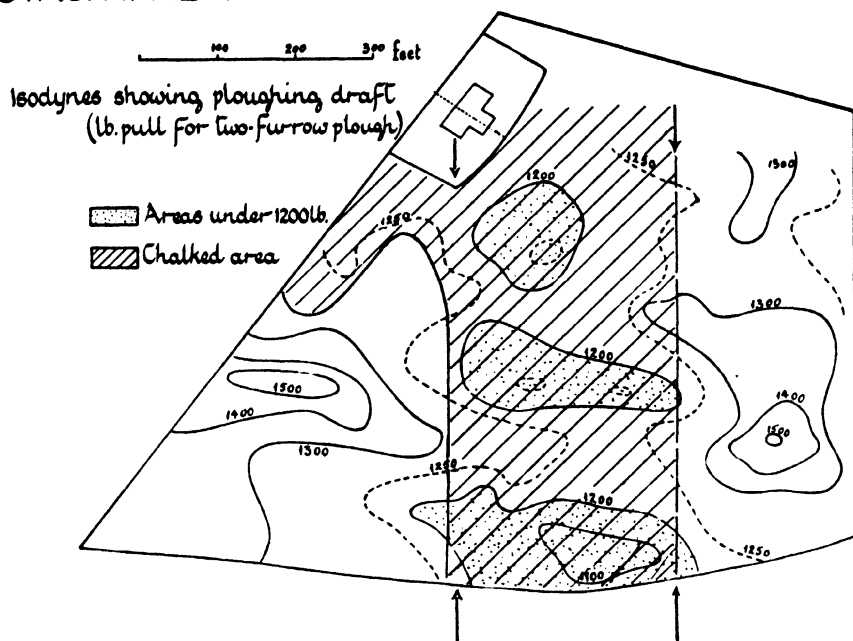 100 200 300 feet
Isodynes showing ploughing draft
(lb. pull for two-furrow plough)
Areas under 1200 lb.
Chalked area
1250
1200
1250
1300
1300
1200
1500
1400
1400
1500
1300
1250
1200
1250
1100